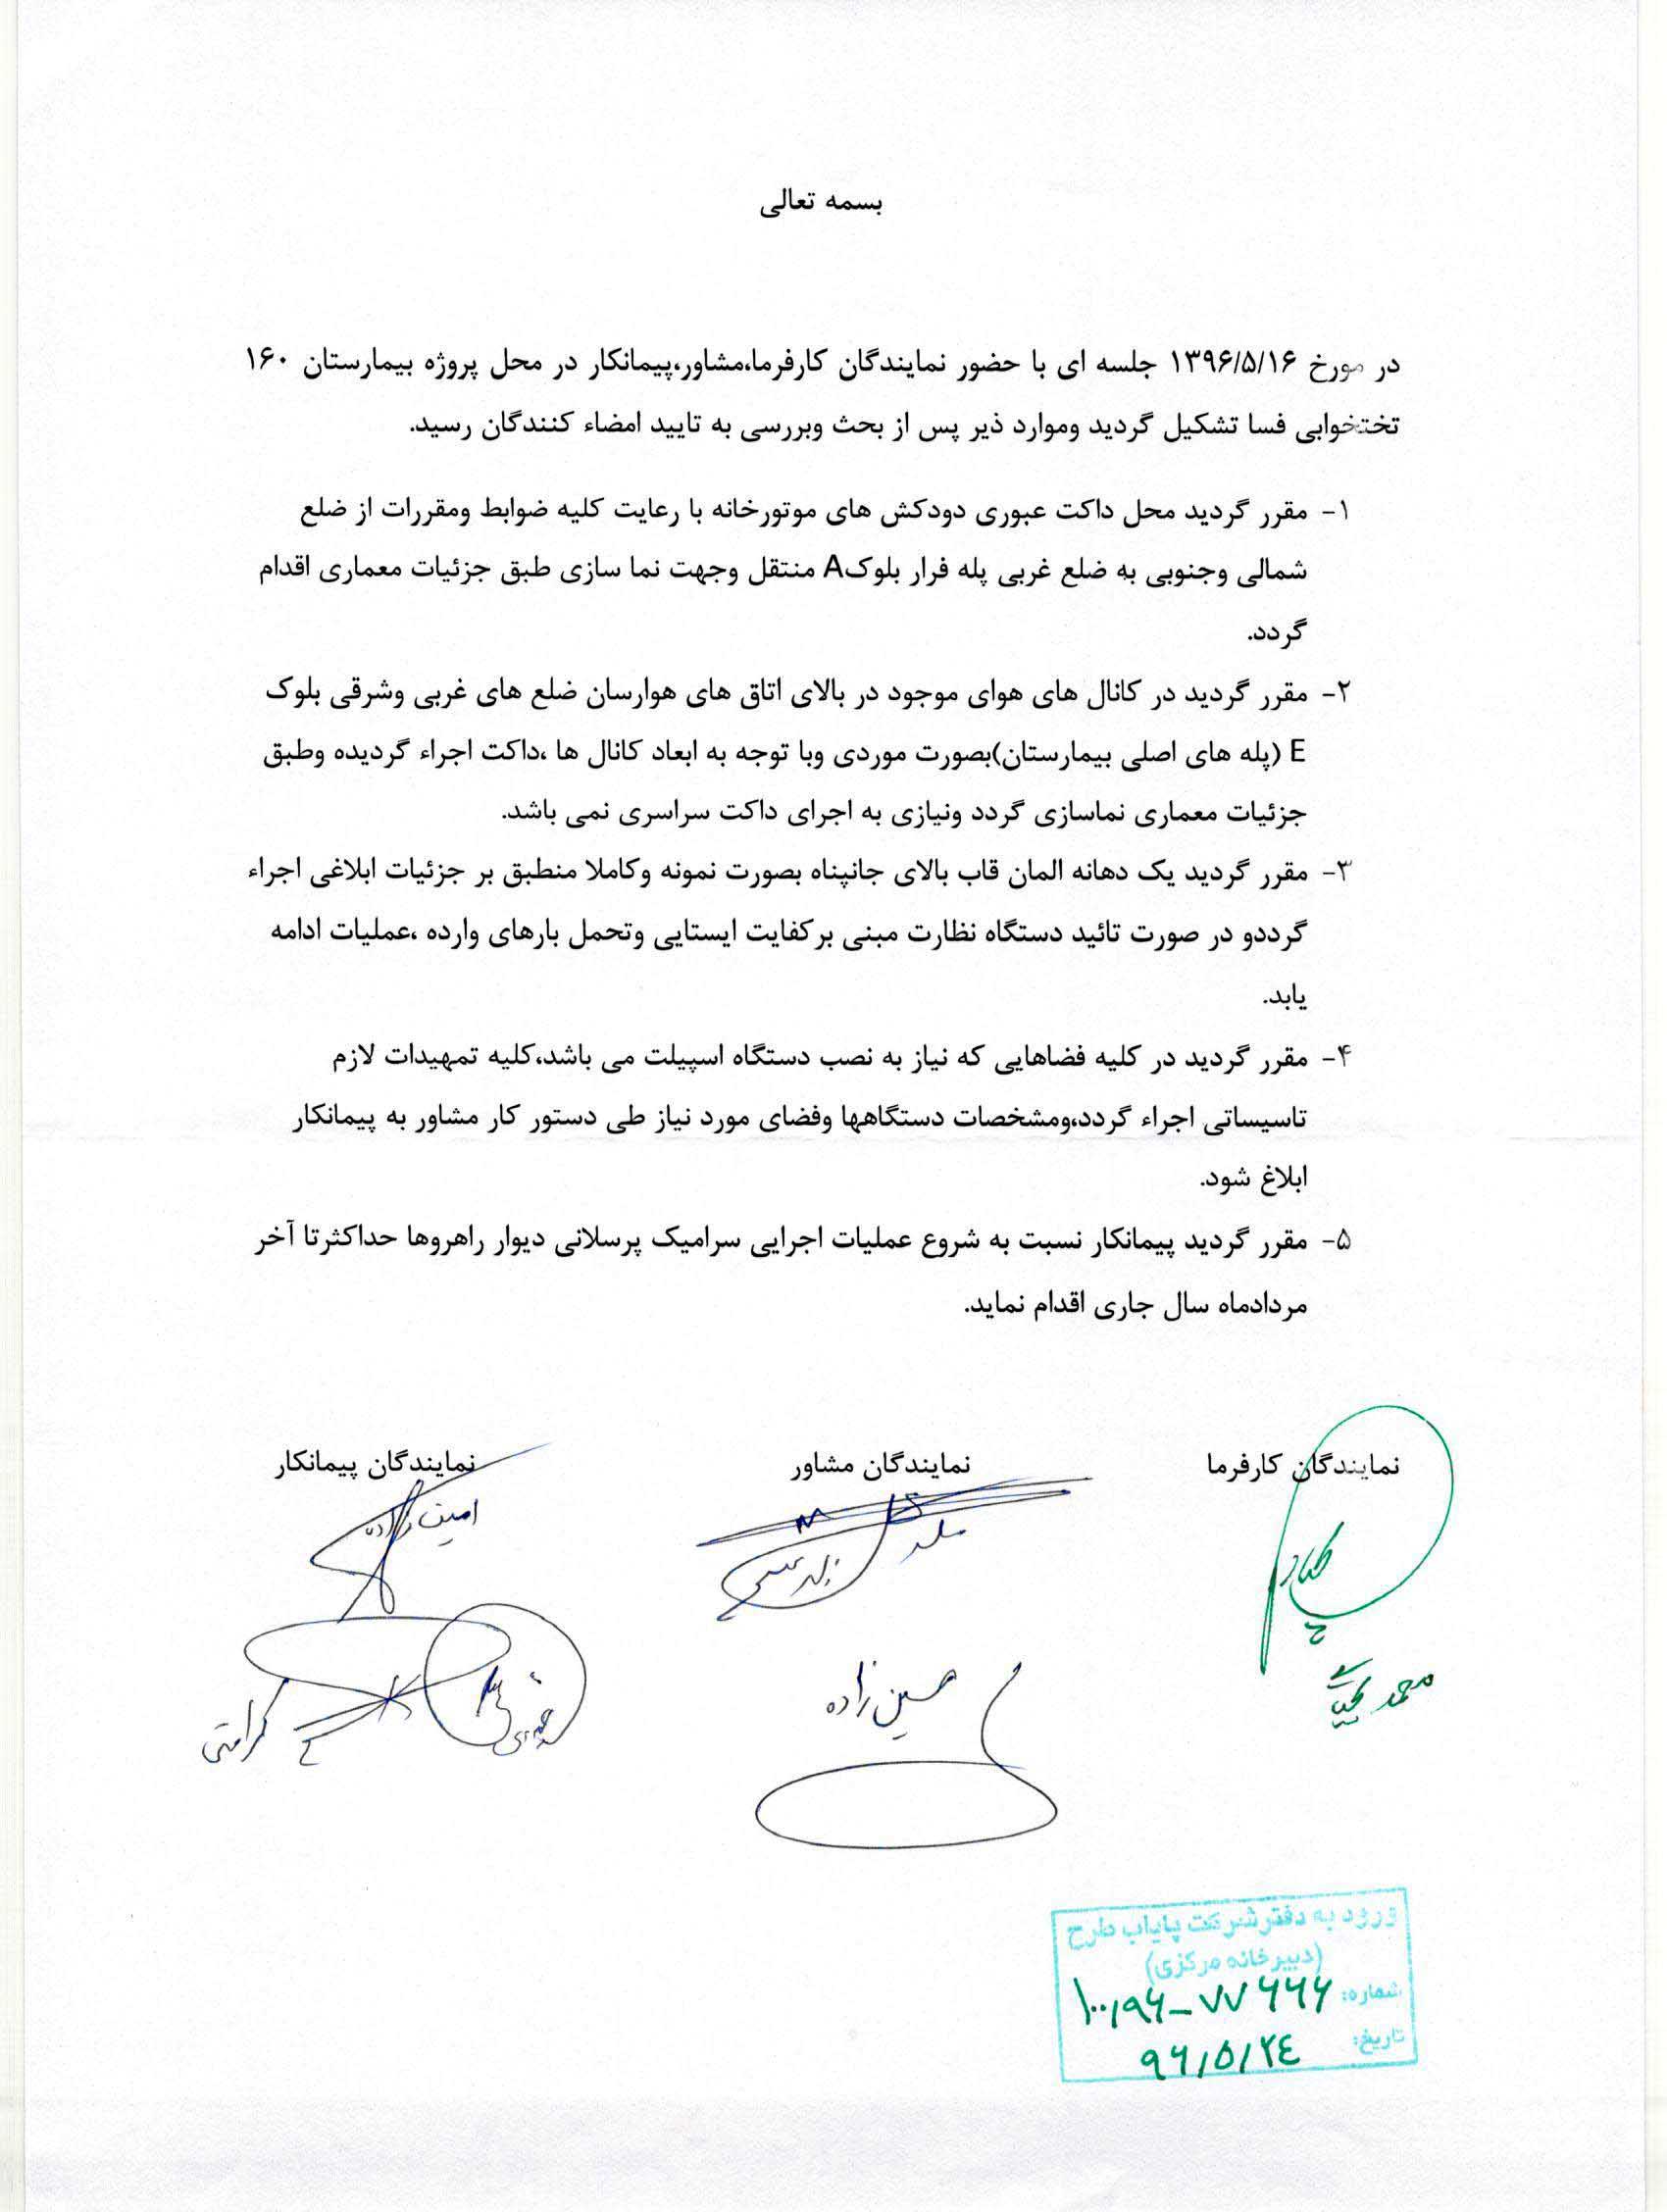 بسمه تعالی
در مورخ ۱۳۹۶/۵/۱۶ جلسه ای با حضور نمایندگان کارفرما،مشاور،پیمانکار در محل پروژه بیمارستان ۱۶۰
تختخوابی فسا تشکیل گردید وموارد ذیر پس از بحث وبررسی به تایید امضاء کنندگان رسید.
۱- مقرر گردید محل داکت عبوری دودکش های موتورخانه با رعایت کلیه ضوابط ومقررات از ضلع
شمالی وجنوبی به ضلع غربی پله فرار بلوکA منتقل وجهت نما سازی طبق جزئیات معماری اقدام
گردد.
۲- مقرر گردید در کانال های هوای موجود در بالای اتاق های هوارسان ضلع های غربی وشرقی بلوک
E (پله های اصلی بیمارستان)بصورت موردی وبا توجه به ابعاد کانال ها ،داکت اجراء گردیده وطبق
جزئیات معماری نماسازی گردد ونیازی به اجرای داکت سراسری نمی باشد.
۳- مقرر گردید یک دهانه المان قاب بالای جانپناه بصورت نمونه وکاملا منطبق بر جزئیات ابلاغی اجراء
گرددو در صورت تائید دستگاه نظارت مبنی برکفایت ایستایی وتحمل بارهای وارده ،عملیات ادامه
یابد.
۴- مقرر گردید در کلیه فضاهایی که نیاز به نصب دستگاه اسپیلت می باشد،کلیه تمهیدات لازم
تاسیساتی اجراء گردد،ومشخصات دستگاهها وفضای مورد نیاز طی دستور کار مشاور به پیمانکار
ابلاغ شود.
۵- مقرر گردید پیمانکار نسبت به شروع عملیات اجرایی سرامیک پرسلانی دیوار راهروها حداکثرتا آخر
مردادماه سال جاری اقدام نماید.
نمایندگان کارفرما نمایندگان مشاور نمایندگان پیمانکار
امین زاده
حسین زاده
محمد
کرامتی
ورود به دفتر شرکت پایاب طرح
(دبیرخانه مرکزی)
شماره: ۱۰۰٫۹۶-۷۷۶۶۶
تاریخ: ۹۶/۵/۲۴